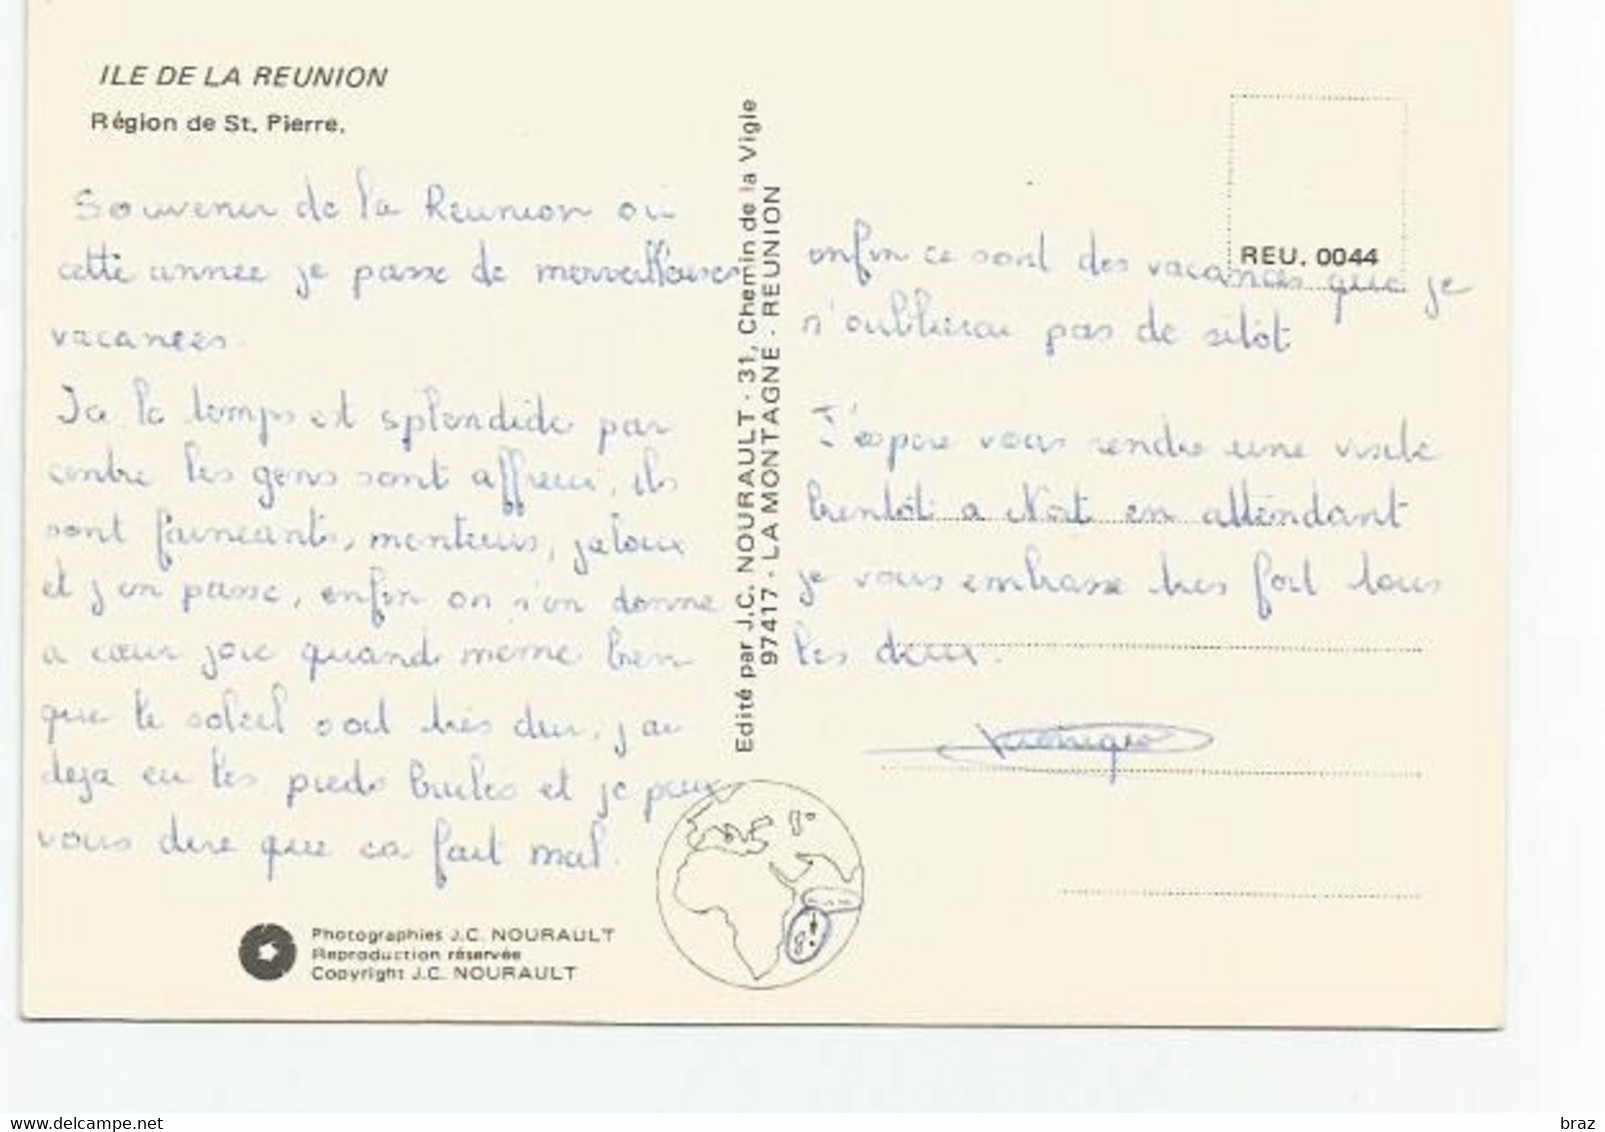 ILE DE LA REUNION
Région de St. Pierre.
Souvenir de la Reunion ou
cette année je passe de merveilleuses
vacances.
Ia le temps est splendide par
contre les gens sont affreux, ils
sont faineants, menteurs, jaloux
et j'en passe, enfin on s'en donne
a cœur joie quand meme bien
que le soleil soit très dur, j'ai
deja eu les pieds brulés et je peux
vous dire que ca fait mal.
Photographies J.C. NOURAULT
Reproduction réservée
Copyright J.C. NOURAULT
Edité par J.C. NOURAULT - 31, Chemin de la Vigie
97417 - LA MONTAGNE - REUNION
REU. 0044
enfin ce sont des vacances que je
n'oublierai pas de sitôt
J'espere vous rendre une visite
bientôt a en attendant
je vous embrasse tres fort tous
les deux.
delcampe.net
braz